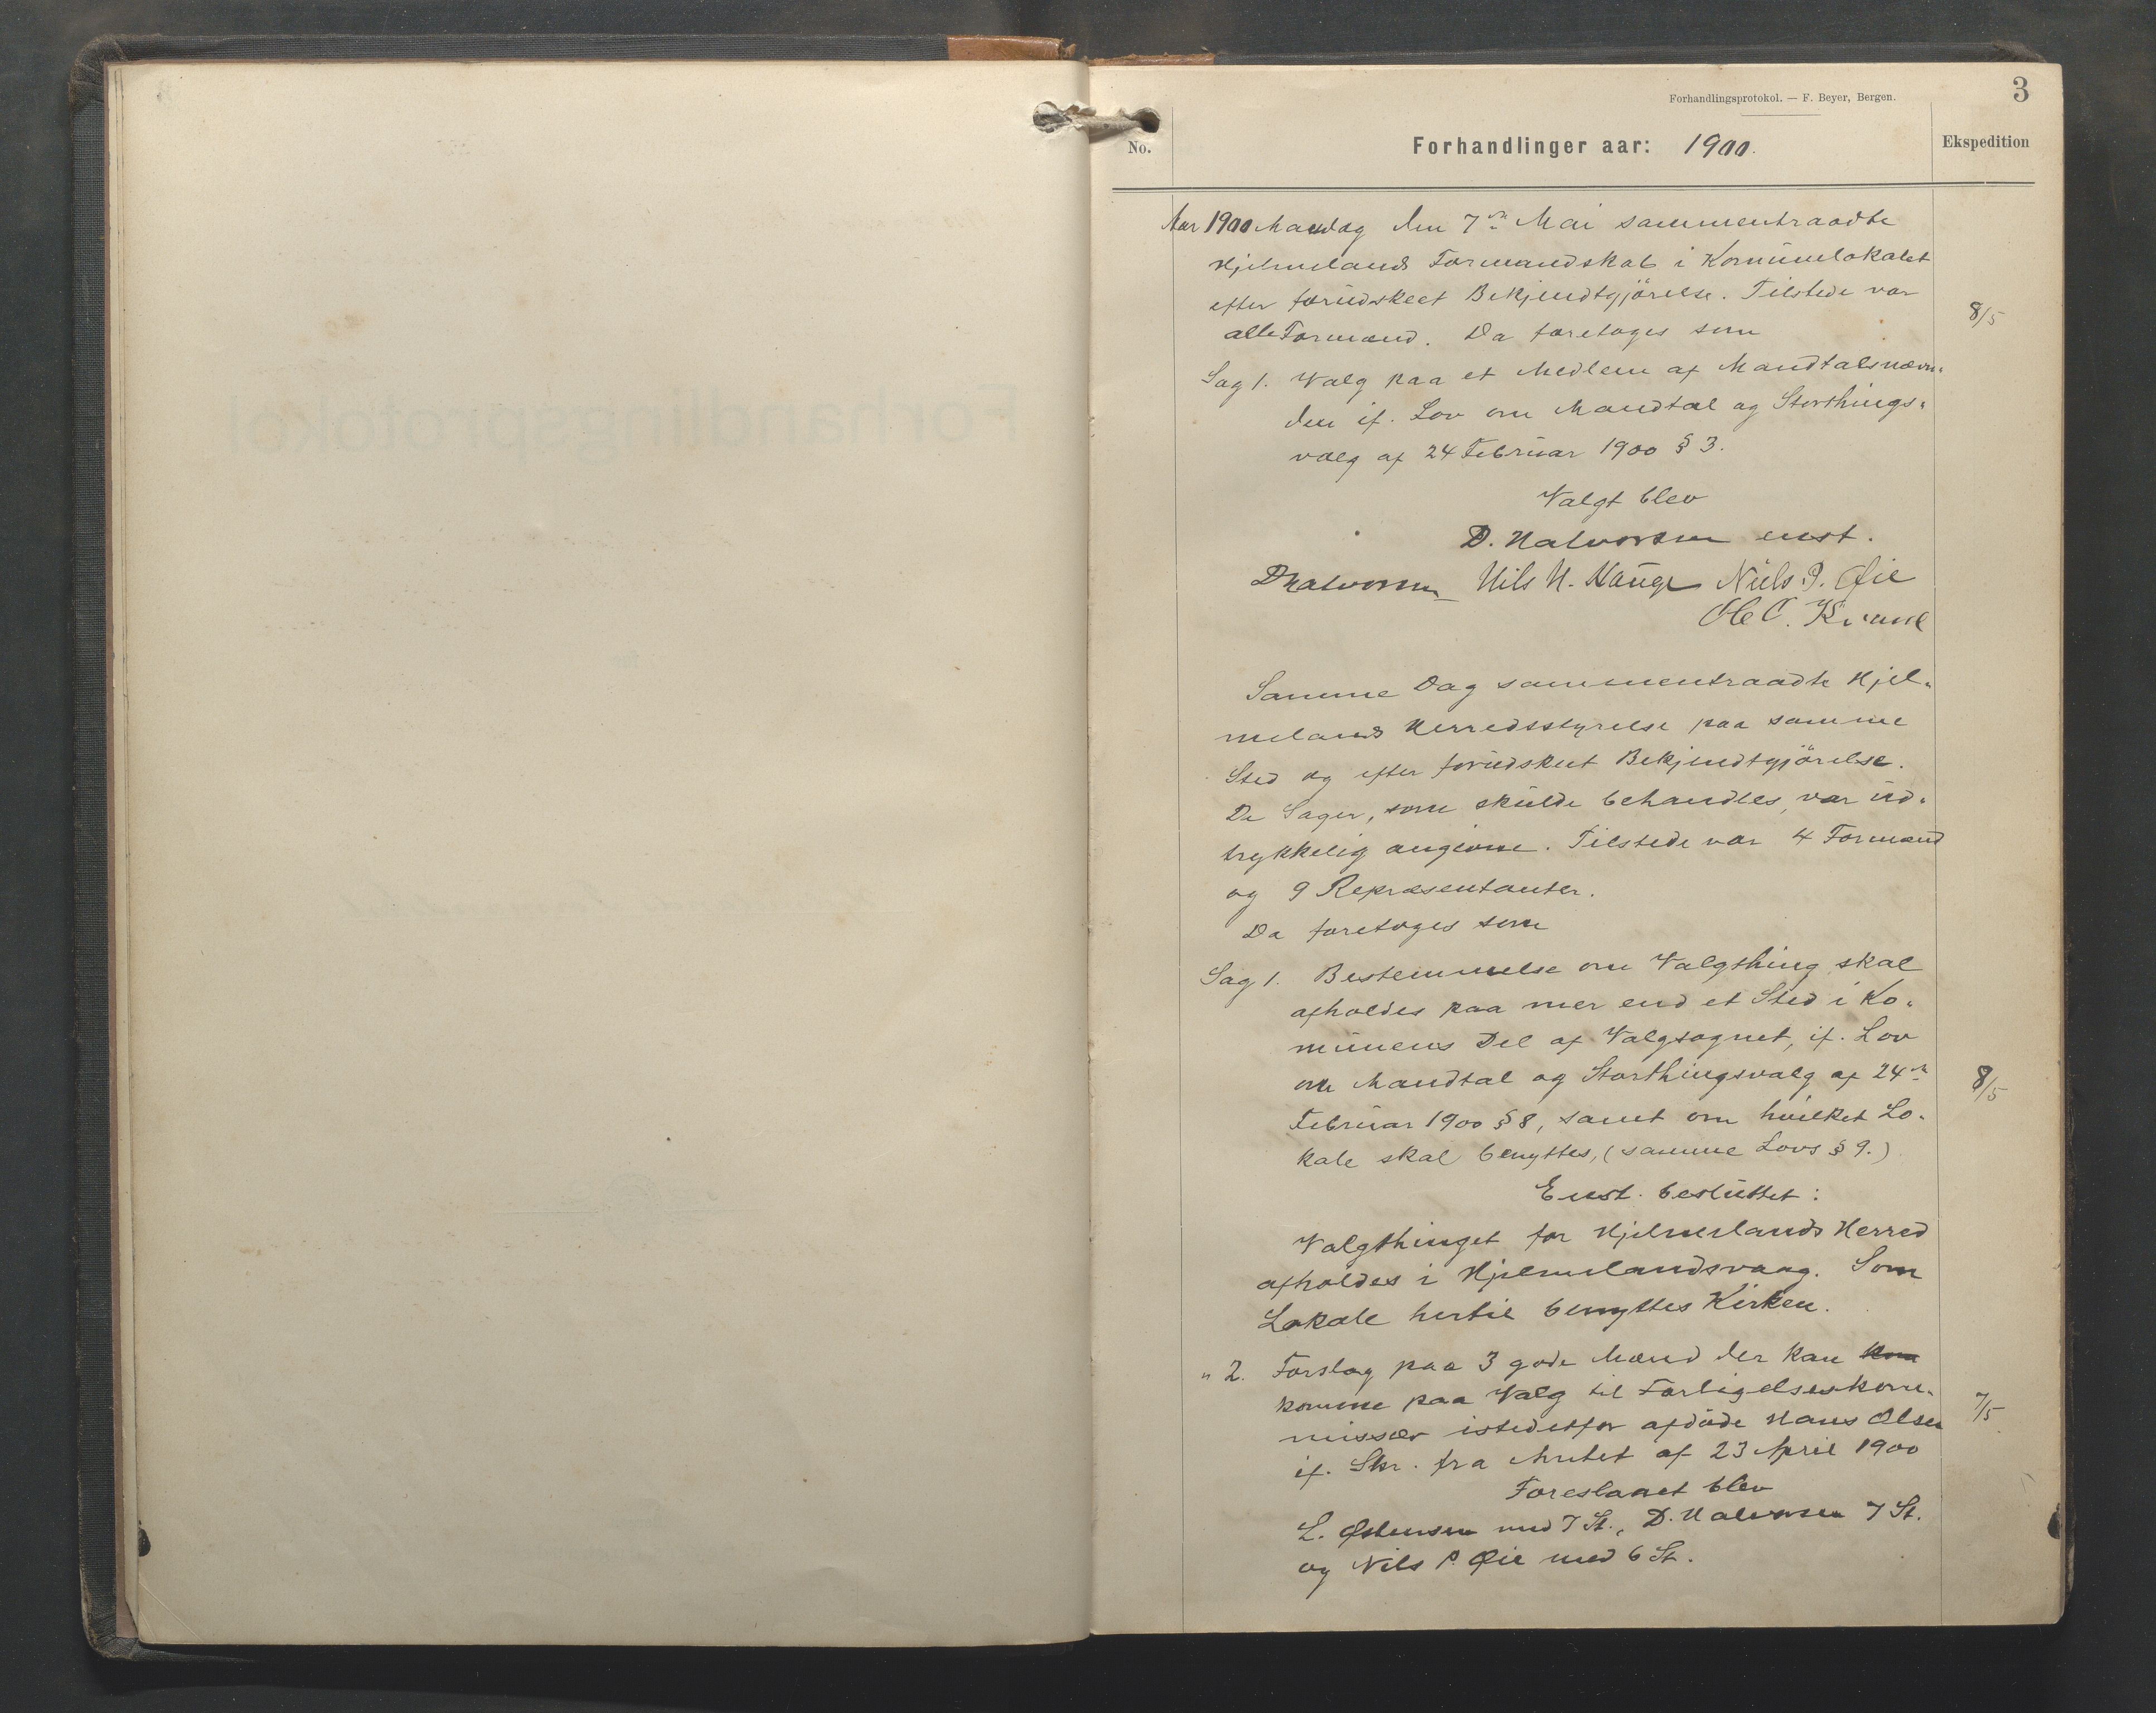 3
Forhandlingsprotokol. — F. Beyer, Bergen.
No.
Forhandlinger aar: 1900.
Ekspedition
Aar 1900 Mandag den 7de Mai sammentraadte
Hjelmelands Formandskab i Komunelokalet
efter forudskeet Bekjendtgjörelse. Tilstede var
8/5
alle Formænd. Da foretoges som
Sag 1. Valg paa et Medlem af Mandtalsnævn-
den if. Lov om Mandtal og Storthings-
valg af 24 Februar 1900 § 3.
Valgt blev
D. Halvorsen enst.
DHalvorsen Nils N. Hauge Niels P. Øie
Ole O. Kvame
Samme Dag sammentraadte Hjel-
melands Herredsstyrelse paa samme
Sted og efter forudskeet Bekjendtgjörelse.
De Sager, som skulde behandles, var ud-
trykkelig angivne. Tilstede var 4 Formænd
og 9 Repræsentanter.
Da foretoges som
Sag 1. Bestemmelse om Valgthing skal
afholdes paa mer end et Sted i Ko-
munens Del af Valgsognet, if. Lov
om Mandtal og Storthingsvalg af 24de
8/5
Februar 1900 § 8, samt om hvilket Lo-
kale skal benyttes, (samme Lovs § 9.)
Enst. besluttet:
Valgthinget for Hjelmelands Herred
afholdes i Hjelmelandsvaag. Som
Lokale hertil benyttes Kirken.
" 2. Forslag paa 3 gode Mænd der kan kom
komme paa Valg til Forligelseskom-
7/5
missær istedetfor afdöde Hans Olsen
if. Skr. fra Amtet af 23 April 1900
Foreslaaet blev
L. Østensen med 7 St., D. Halvorsen 7 St.
og Nils P. Øie med 6 St.